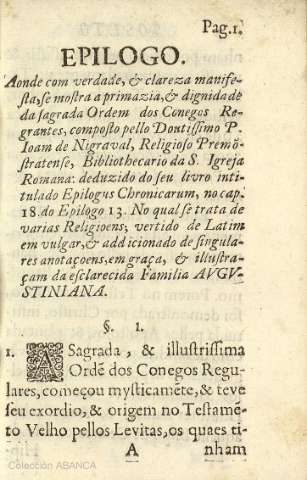 Pag.1.
EPILOGO.
Aonde com verdade, & clareza manife-
sta, se mostra a primazia, & dignidade
da sagrada Ordem dos Conegos Re-
grantes, composto pello Doutissimo P.
Ioam de Nigraval, Religioso Premõ-
stratense, Bibliothecario da S. Igreja
Romana: deduzido do seu livro inti-
tulado Epilogus Chronicarum, no cap.
18. do Epilogo 13. No qual se trata de
varias Religioens, vertido de Latim
em vulgar, & addicionado de singula-
res anotaçoens, em graça, & illustra-
çam da esclarecida Familia AVGV-
STINIANA.
§. 1.
1. A Sagrada, & illustrissima
Ordẽ dos Conegos Regu-
lares, começou mysticamẽte, & teve
seu exordio, & origem no Testamẽ-
to Velho pellos Levitas, os quaes ti-
A nham
Colección ABANCA